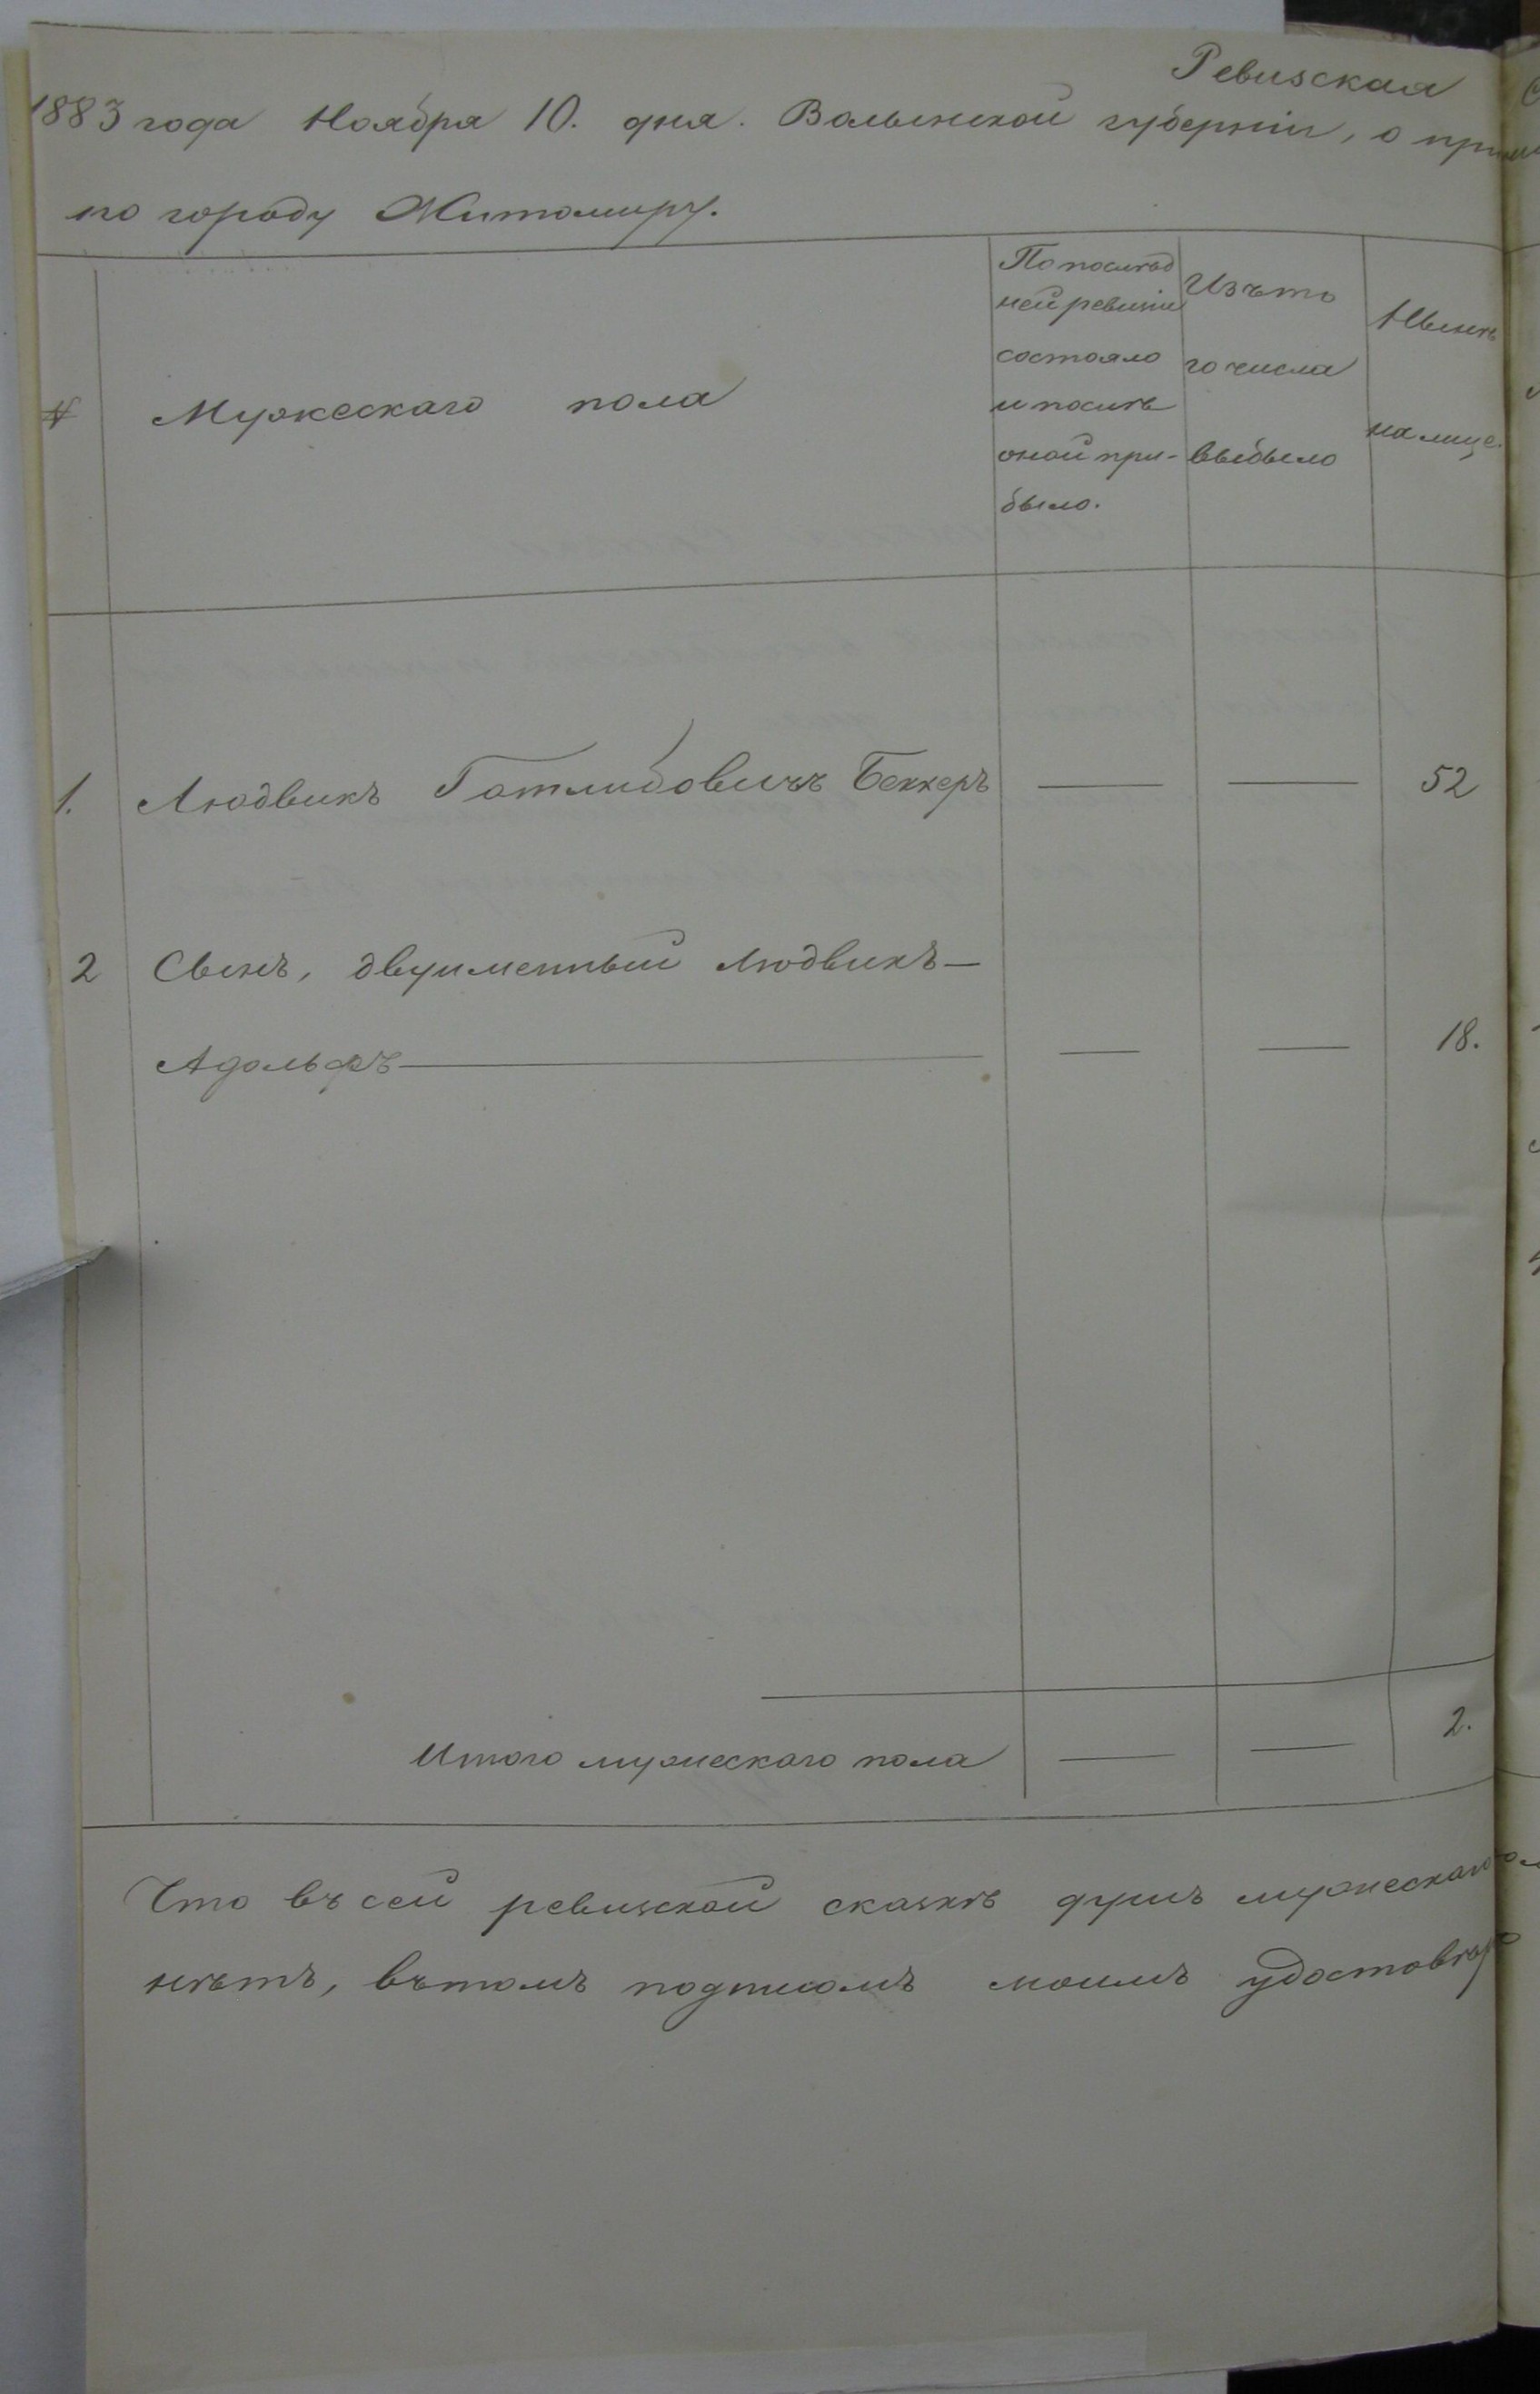 Ревизская
1883 года Ноября 10. дня. Волынской губерніи, о
по городу Житомиру.
№
Мужескаго пола
По послѣд
ней ревизіи
состояло
и послѣ
оной при-
было.
Изъ то
го числа
выбыло
Нынѣ
на лице.
1. Людвикъ Готлибовичъ Беккеръ — — 52
2 Сынъ, двуименный Людвикъ—
Адольфъ — — — 18.
Итого мужескаго пола — — 2.
Что въ сей ревизской сказкѣ душъ мужескаго
нѣтъ, въ томъ подписомъ моимъ